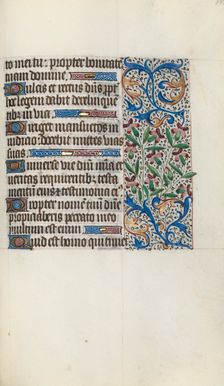 to mei tu: propter bonitatem
tuam domine.
Dulcis et rectus dñs: propter
hoc legem dabit delinquen
tibus in via
Diriget mansuetos in
iudicio: docebit mites vias
suas.
Universe vie dñi misericordia
et veritas requirentibz testa
mentum eius et testimonia ei
Propter nomen tuum dñe
propiciaberis peccato meo
multum est enim
Quis est homo qui timet